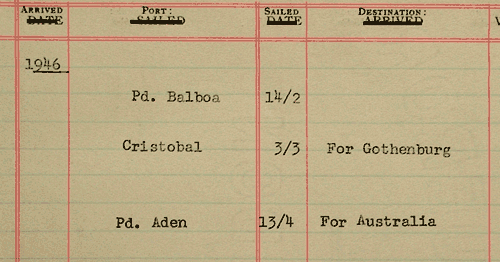 ARRIVED PORT: SAILED DESTINATION:
DATE SAILED DATE ARRIVED
1946
Pd. Balboa 14/2
Cristobal 3/3 For Gothenburg
Pd. Aden 13/4 For Australia